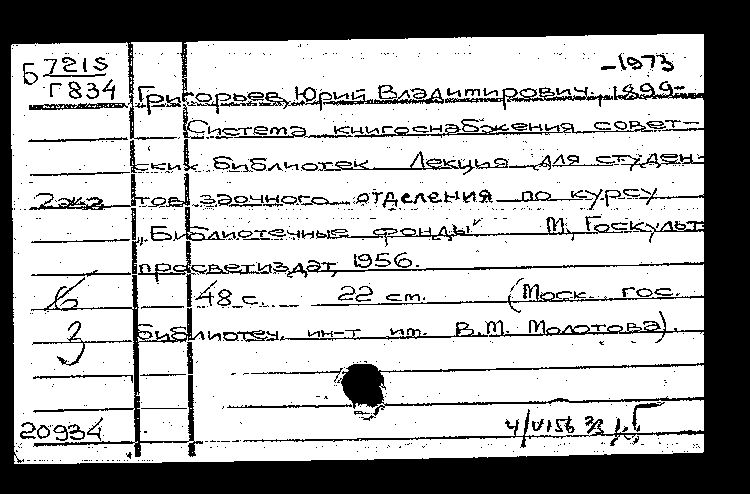 Б 7215
Г834
-1973
Григорьев, Юрий Владимирович, 1899-
Система книгоснабжения совет-
ских библиотек. Лекция для студен-
2экз тов заочного отделения по курсу
„Библиотечные фонды“ М., Госкульт-
просветиздат, 1956.
48 с. 22 cm. (Моск. гос.
библиотеч. ин-т им. В.М. Молотова).
20934